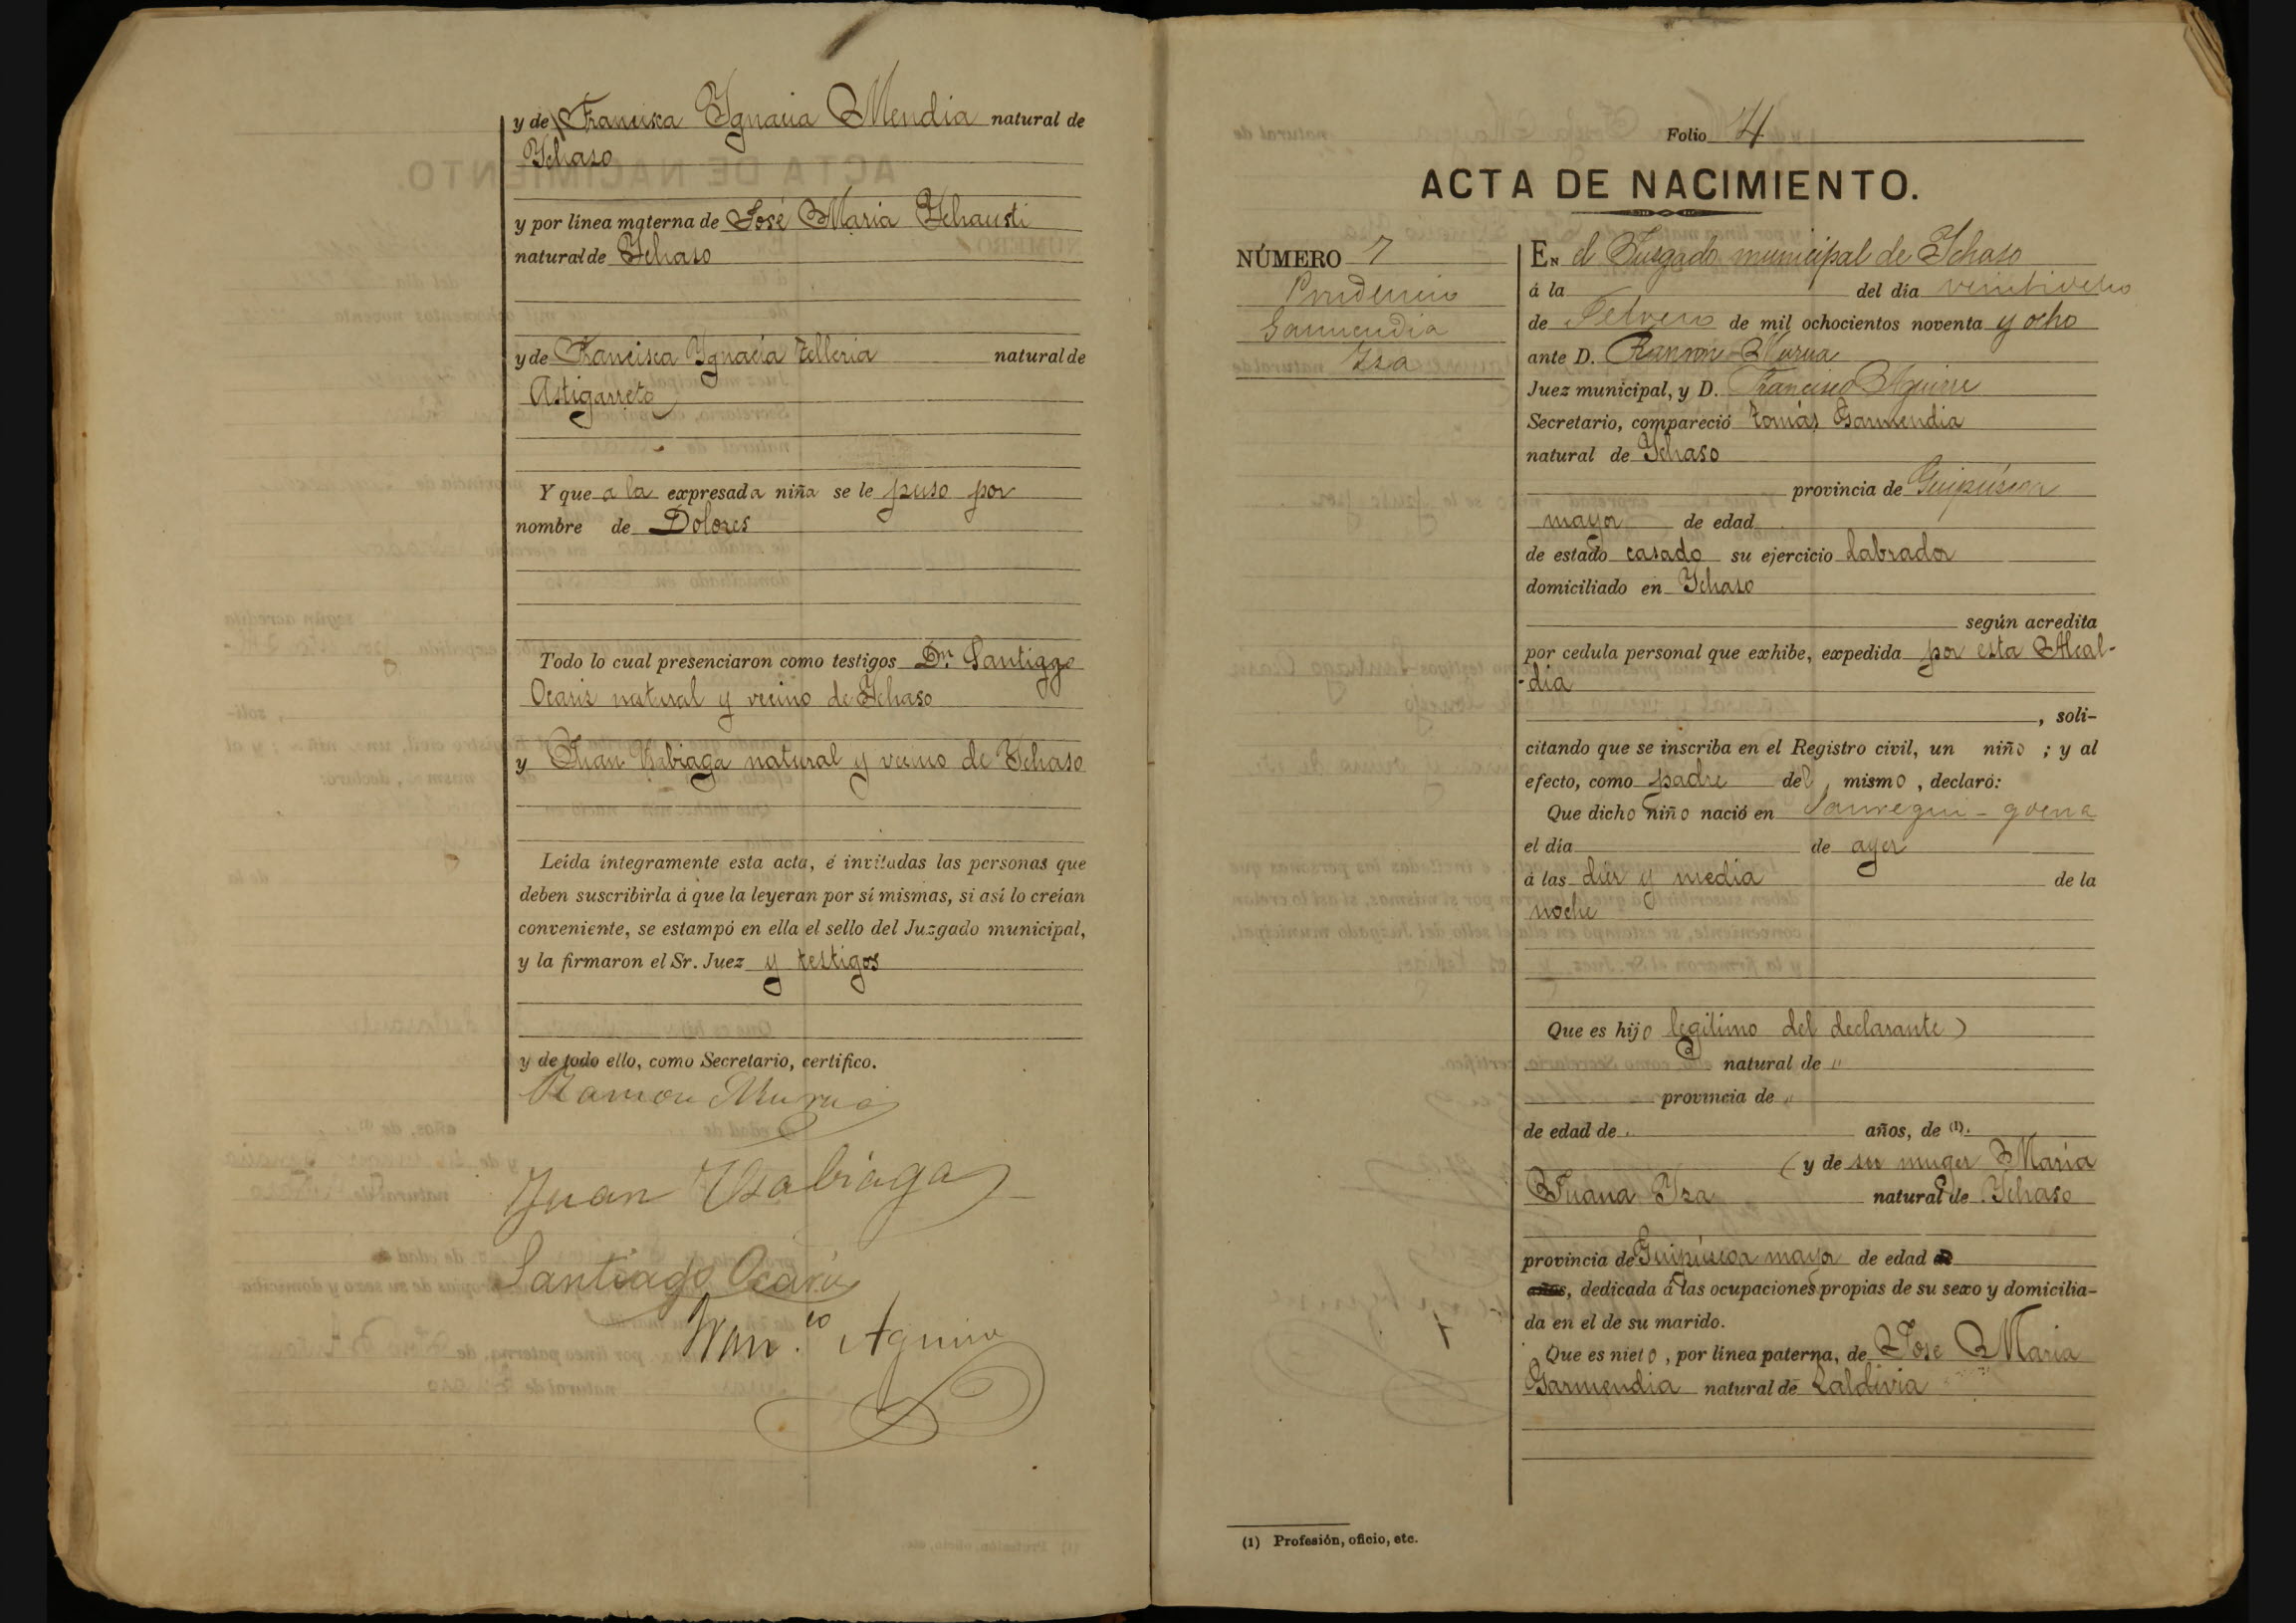 y de Francisca Ygnacia Mendia natural de
Ychaso
y por línea materna de José Maria Ychausti
natural de Ychaso
y de Francisca Ygnacia Telleria natural de
Astigarreta
Y que a la expresada niña se le puso por
nombre de Dolores
Todo lo cual presenciaron como testigos Dn. Santiago
Ocariz natural y vecino de Ychaso
y Juan Usabiaga natural y vecino de Ychaso
Leída íntegramente esta acta, é invitadas las personas que
deben suscribirla á que la leyeran por sí mismas, si así lo creían
conveniente, se estampó en ella el sello del Juzgado municipal,
y la firmaron el Sr. Juez y testigos
y de todo ello, como Secretario, certifico.
Ramon Murua
Juan Usabiaga
Santiago Ocariz
Fran.co Aguirre
Folio 4
ACTA DE NACIMIENTO.
NÚMERO 7
Prudencio
Garmendia
Yza
EN el Juzgado municipal de Ychaso
á la del día veintiocho
de Febrero de mil ochocientos noventa y ocho
ante D. Ramon Murua
Juez municipal, y D. Francisco Aguirre
Secretario, compareció Tomás Garmendia
natural de Ychaso
provincia de Guipúzcoa
mayor de edad
de estado casado su ejercicio labrador
domiciliado en Ychaso
según acredita
por cedula personal que exhibe, expedida por esta Alcal-
-dia
, soli-
citando que se inscriba en el Registro civil, un niño ; y al
efecto, como padre del mismo , declaró:
Que dicho niño nació en Jauregui-goena
el día de ayer
á las diez y media de la
noche
Que es hijo legitimo del declarante)
natural de "
provincia de "
de edad de años, de (1).
(y de su muger Maria
Juana Yza natural de Ychaso
provincia de Guipúzcoa mayor de edad
, dedicada á las ocupaciones propias de su sexo y domicilia-
da en el de su marido.
Que es nieto, por línea paterna, de José Maria
Garmendia natural de Zaldivia
(1) Profesión, oficio, etc.